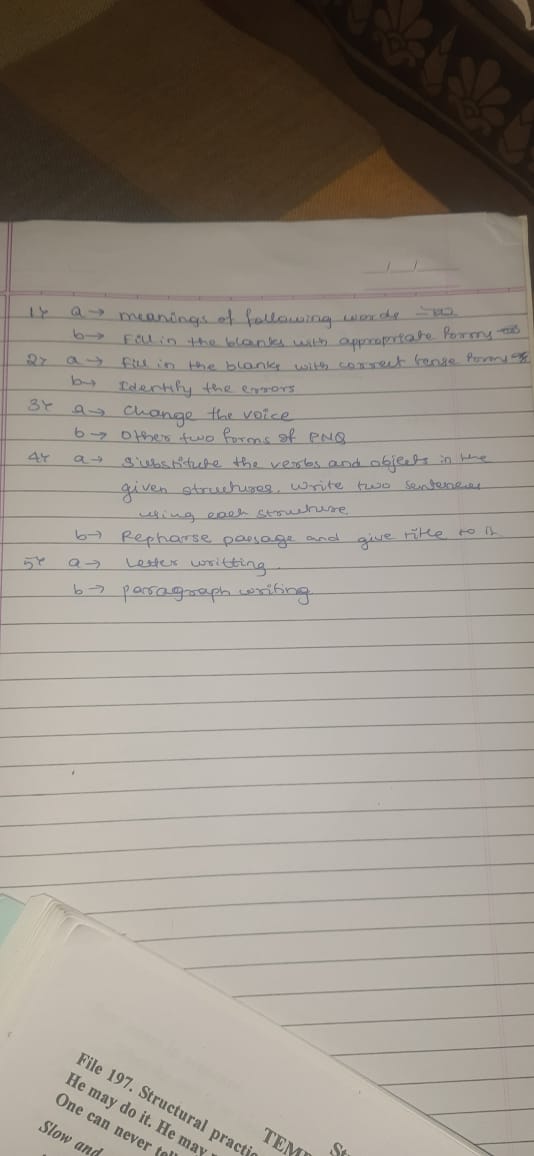 1) a → meanings of following words
b → Fill in the blanks with appropriate forms
2) a → fill in the blanks with correct tense forms
b → Identify the errors
3) a → change the voice
b → other two forms of PNQ
4) a → substitute the verbs and objects in the
given structures. write two sentences
using each structure.
b → Repharse passage and give title to it
5) a → Letter writting
b → paragraph writing
File 197. Structural practic
He may do it. He may
One can never tel
Slow and
TEM
St